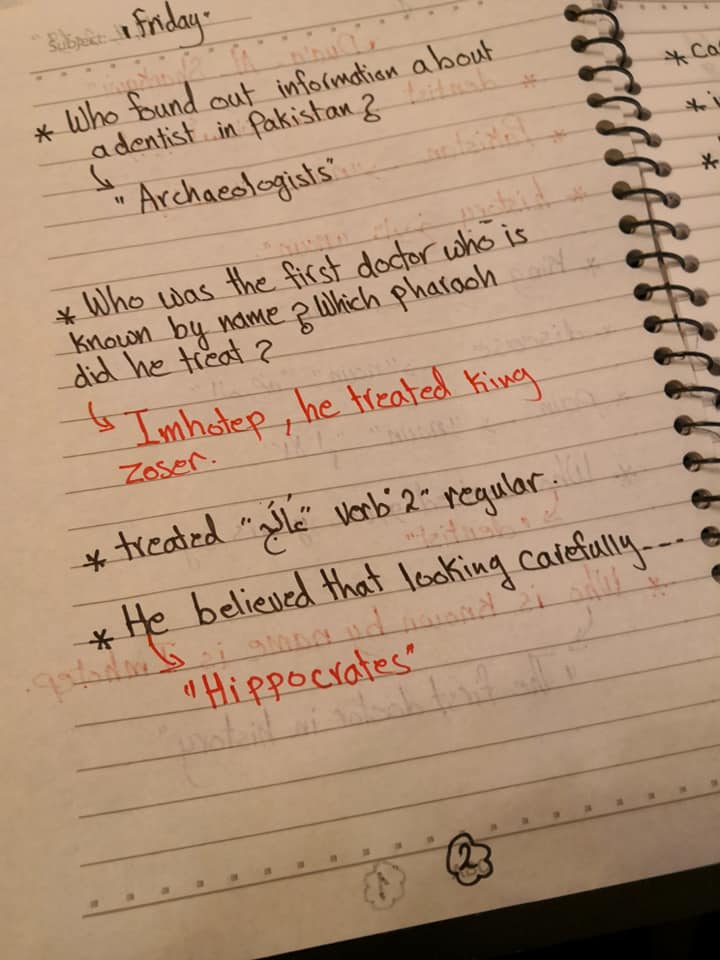 Subject: Friday.
* Who found out information about
a dentist in Pakistan?
"Archaeologists"
* Who was the first doctor who is
known by name? Which pharaoh
did he treat?
Imhotep, he treated king
zoser.
* treated "عَالَجَ" verb "2" regular.
* He believed that looking carefully----
"Hippocrates"
2
1
* ca
* i
*